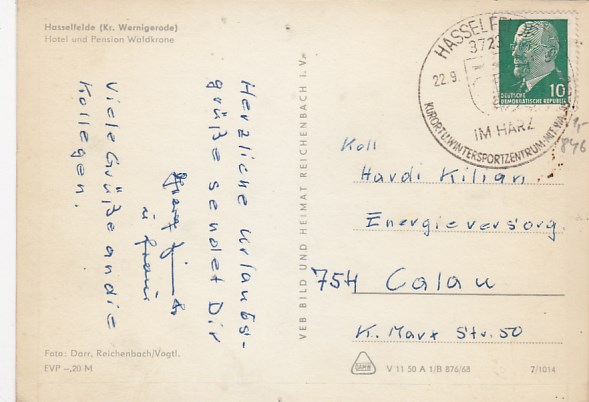 Hasselfelde (Kr. Wernigerode)
Hotel und Pension Waldkrone
Herzliche Urlaubs-
grüße sendet Dir
u. Frau
Viele Grüße an die
Kollegen.
Foto: Darr, Reichenbach/Vogtl.
EVP –,20 M
VEB BILD UND HEIMAT REICHENBACH I. V.
HASSELF
3723
22.9.
IM HARZ
KURORT U. WINTERSPORTZENTRUM
DEUTSCHE
DEMOKRATISCHE REPUBLIK
10
1,-
846
Koll
Hardi Kilian
Energieversorg.
754 Calau
K. Marx Str. 50
V 11 50 A 1/B 876/68
7/1014